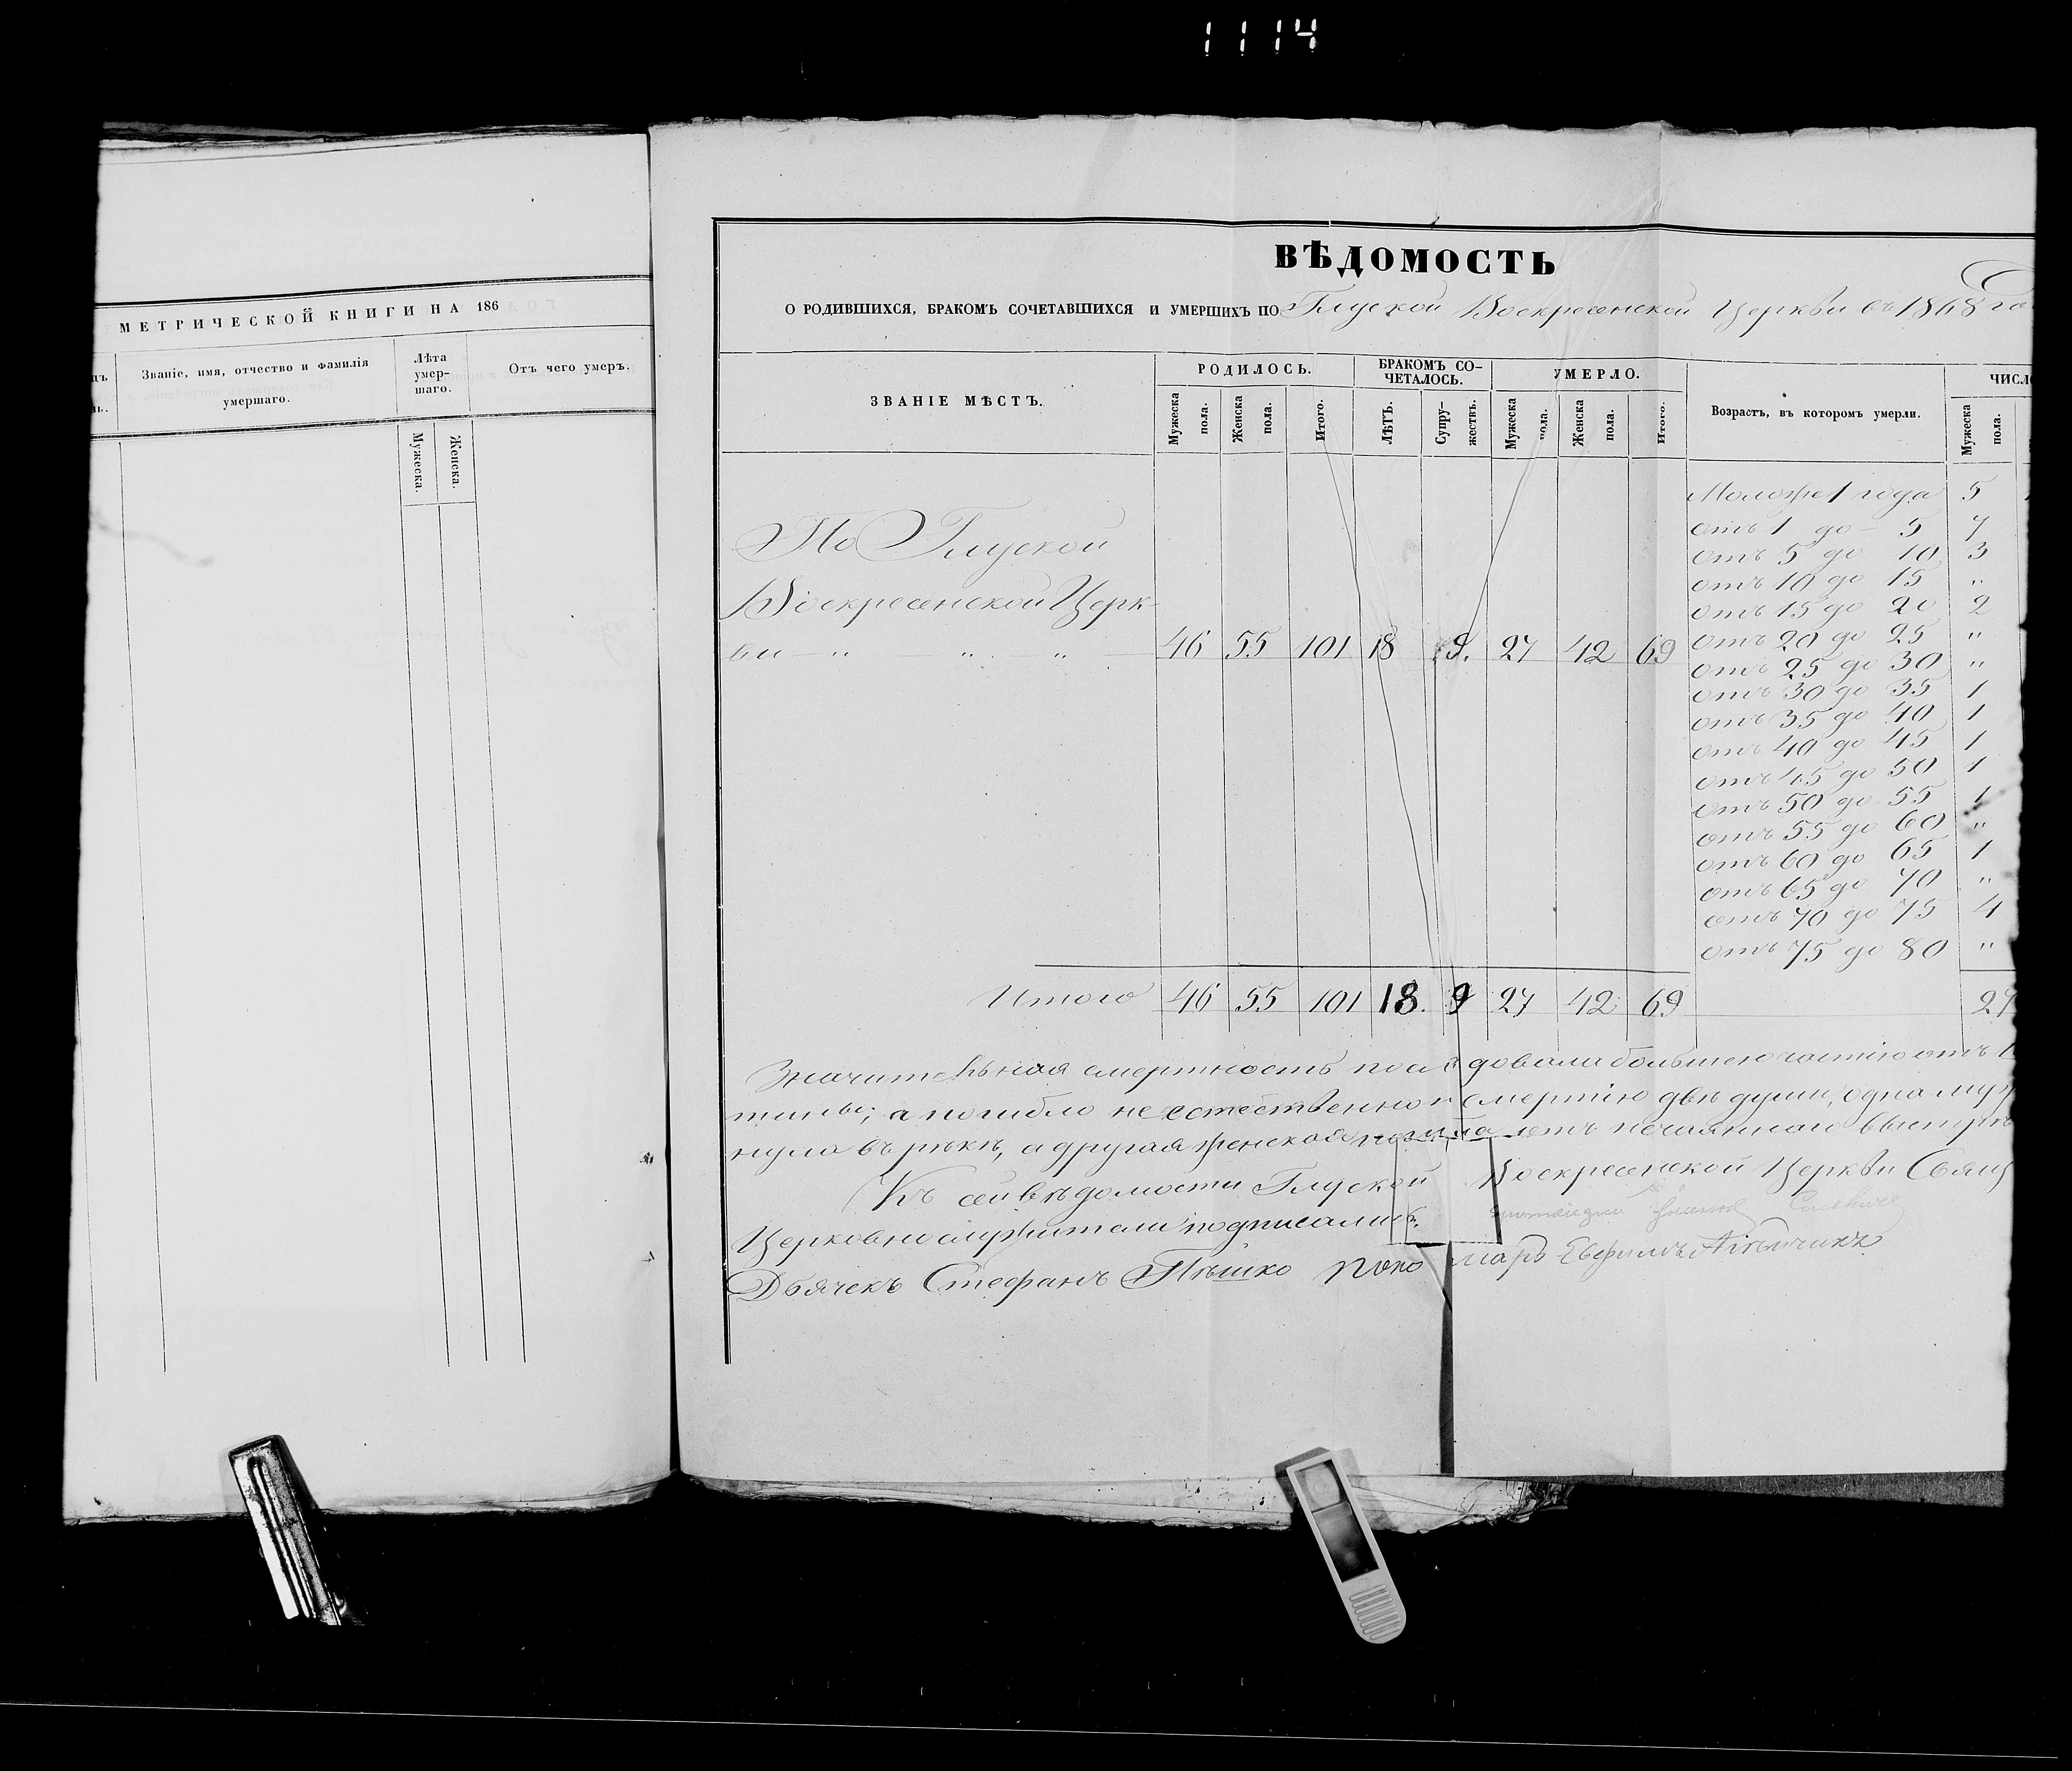 1114
МЕТРИЧЕСКОЙ КНИГИ НА 186
Званіе, имя, отчество и фамилія
умершаго.
Лѣта
умер-
шаго.
Отъ чего умеръ.
Мужеска.
Женска.
ВѢДОМОСТЬ
О РОДИВШИХСЯ, БРАКОМЪ СОЧЕТАВШИХСЯ И УМЕРШИХЪ ПО Глуской Воскресенской Церкви въ 1868 го
ЗВАНІЕ МѢСТЪ.
РОДИЛОСЬ.
Мужеска пола.
Женска пола.
Итого.
БРАКОМЪ СО-
ЧЕТАЛОСЬ.
ЛѢТЪ.
Супру-
жествъ.
УМЕРЛО.
Мужеска пола.
Женска пола.
Итого.
Возрастъ, въ которомъ умерли.
ЧИСЛО
Мужеска пола.
По Глуской
Воскресенской Церк-
ви — " — " " — 46 55 101 18 9. 27 42 69
Моложе 1 года 5
отъ 1 до - 5 7
отъ 5 до 10 3
отъ 10 до 15 "
отъ 15 до 20 2
отъ 20 до 25 "
отъ 25 до 30 "
отъ 30 до 35 1
отъ 35 до 40 1
отъ 40 до 45 1
отъ 45 до 50 1
отъ 50 до 55 1
отъ 55 до 60 "
отъ 60 до 65 1
отъ 65 до 70 "
отъ 70 до 75 4
отъ 75 до 80 "
Итого 46 55 101 18. 9 27 42 69 27
Значительная смертность послѣдовала большею частію отъ
а погибло не естественною смертію двѣ души, одна
нула въ рѣкѣ, а другая женская отъ нечаяннаго
Къ сей вѣдомости Глуской Воскресенской Церкви Свящ
Церковнослужители подписались:
Дьячекъ Стефанъ Пѣшко поно марь Евфимъ